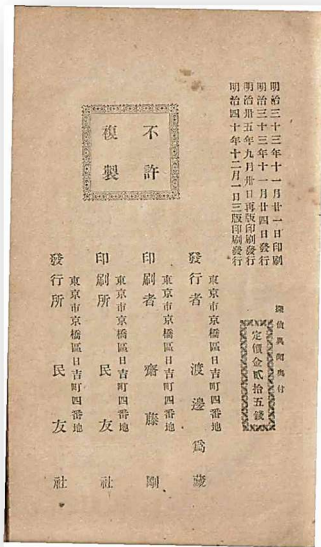 明治三十三年十一月廿一日印刷
明治三十三年十一月廿四日發行
明治卅五年九月卅日再版印刷發行
明治四十年十二月一日三版印刷發行
定價金貳拾五錢
不許
複製
東京市京橋區日吉町四番地
發行者 渡邊爲藏
東京市京橋區日吉町四番地
印刷者 齋藤剛
東京市京橋區日吉町四番地
印刷所 民友社
東京市京橋區日吉町四番地
發行所 民友社